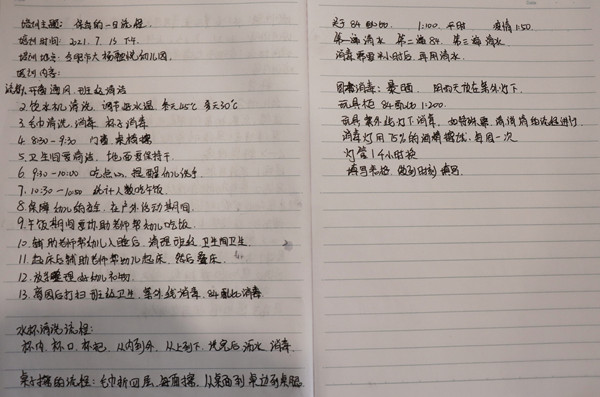 培训主题: 保育的一日流程.
培训时间: 2021.7.13 下午.
培训地点: 幼儿园.
培训内容:
开窗通风 班级清洁
2. 饮水机清洗, 调节好水温 冬天45℃ 夏天30℃
3. 毛巾清洗, 消毒 杯子消毒
4. 8:30-9:30 门窗 桌椅擦
5. 卫生间要清洁, 地面要保持干
6. 9:30-10:00 吃点心, 提醒幼儿洗手
7. 10:30-10:50 统计人数吃午饭
8. 保障幼儿的安全, 在户外活动期间
9. 午饭期间要协助老师帮幼儿吃饭.
10. 辅助老师帮幼儿入睡后, 清理班级 卫生间卫生
11. 起床后辅助老师帮幼儿起床, 然后叠床.
12. 放学整理好幼儿衣物.
13. 离园后打扫班级卫生, 紫外线消毒, 84配比消毒
水杯清洗流程:
杯内, 杯口, 杯把, 从内到外, 从上到下, 洗完后 消毒.
桌子擦的流程: 毛巾折四层, 每面擦, 从桌面到桌边到桌腿.
关于84配比 1:100 平时 疫情1:50.
第一遍 清水 第二遍84. 第三遍清水
消毒 半小时后, 再用清水.
图书消毒: 暴晒. 放在紫外灯下.
玩具柜 84配比 1:200.
玩具 紫外线灯下消毒,
消毒灯用75%的酒精擦拭, 每周一次
灯管1千小时换
填写表格, 做到时刻填写.